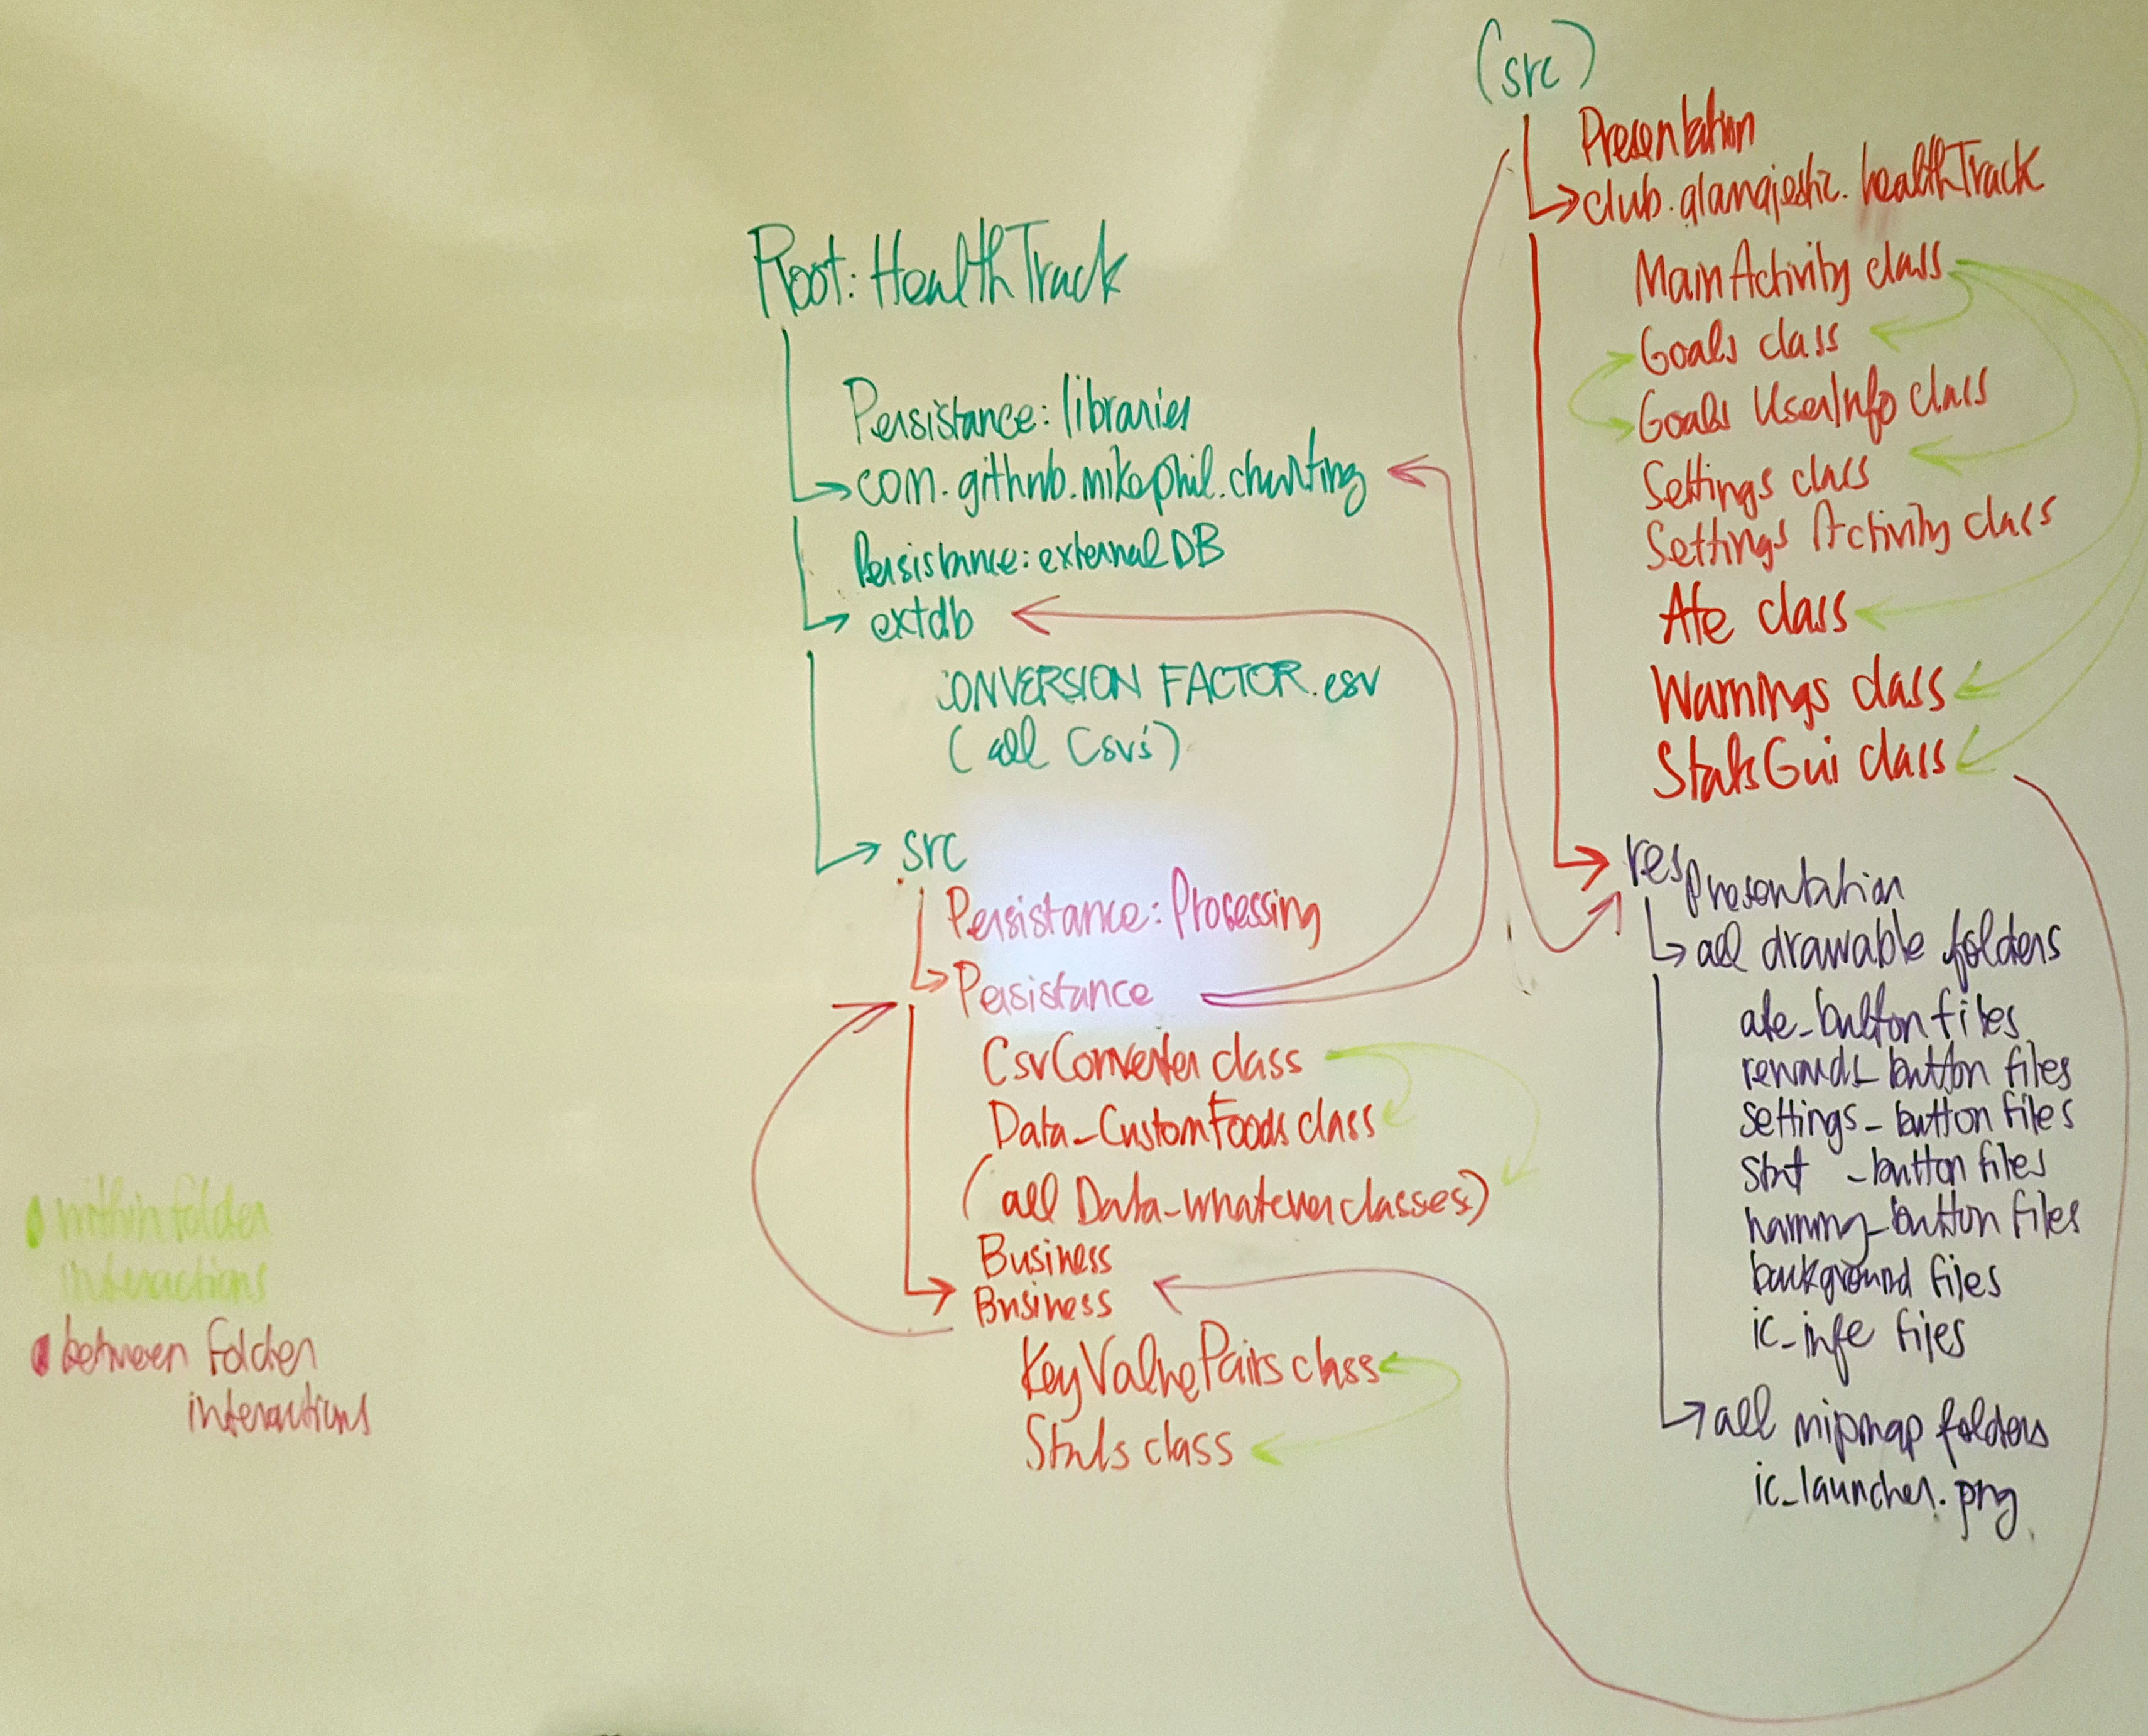 Root: HealthTrack
Persistance: libraries
com.github.mikephil.charting
Persistance: externalDB
extdb
CONVERSION FACTOR.csv
(all Csv's)
src
Persistance: Processing
Persistance
CsvConverter class
Data_CustomFoods class
(all Data_whatever classes)
Business
Business
KeyValuePairs class
Stats class
within folder
interactions
between folder
interactions
(src)
Presentation
club.glamajestic.healthTrack
MainActivity class
Goals class
Goals UserInfo class
Settings class
Settings Activity class
Ate class
Warnings class
StatsGui class
res
Presentation
all drawable folders
ate_button files
rewards_button files
settings_button files
_button files
_button files
background files
ic_info files
all mipmap folders
ic_launcher.png